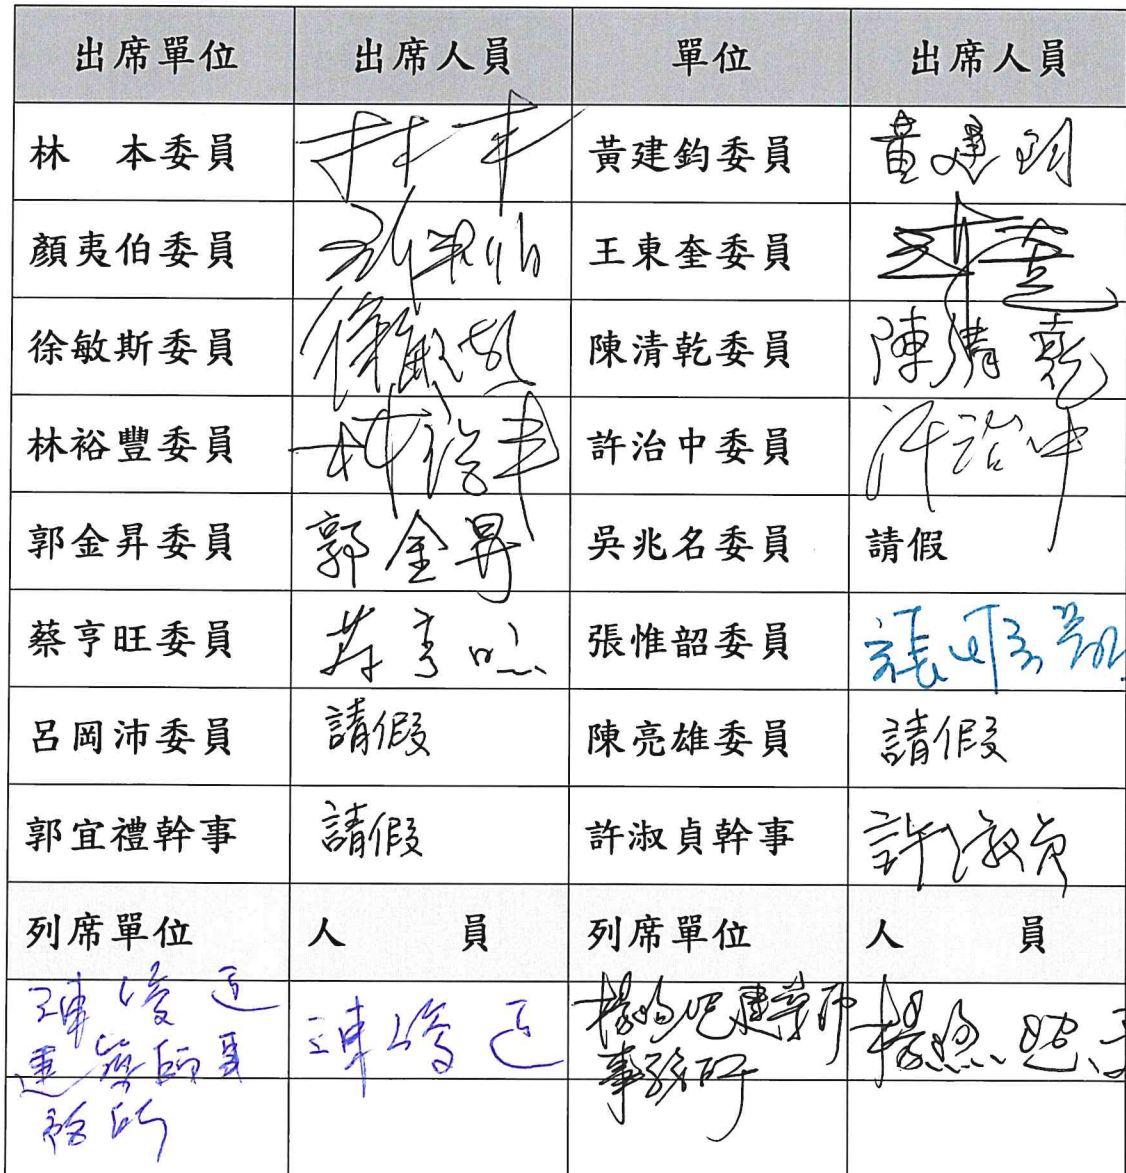 出席單位 出席人員 單位 出席人員
林 本委員 林本 黃建鈞委員 黃建鈞
顏夷伯委員 王東奎委員
徐敏斯委員 徐敏斯 陳清乾委員 陳清乾
林裕豐委員 林裕丰 許治中委員 許治中
郭金昇委員 郭金昇 吳兆名委員 請假
蔡亨旺委員 蔡亨旺 張惟韶委員
呂岡沛委員 請假 陳亮雄委員 請假
郭宜禮幹事 請假 許淑貞幹事 許淑貞
列席單位 人 員 列席單位 人 員
建築師
事務所